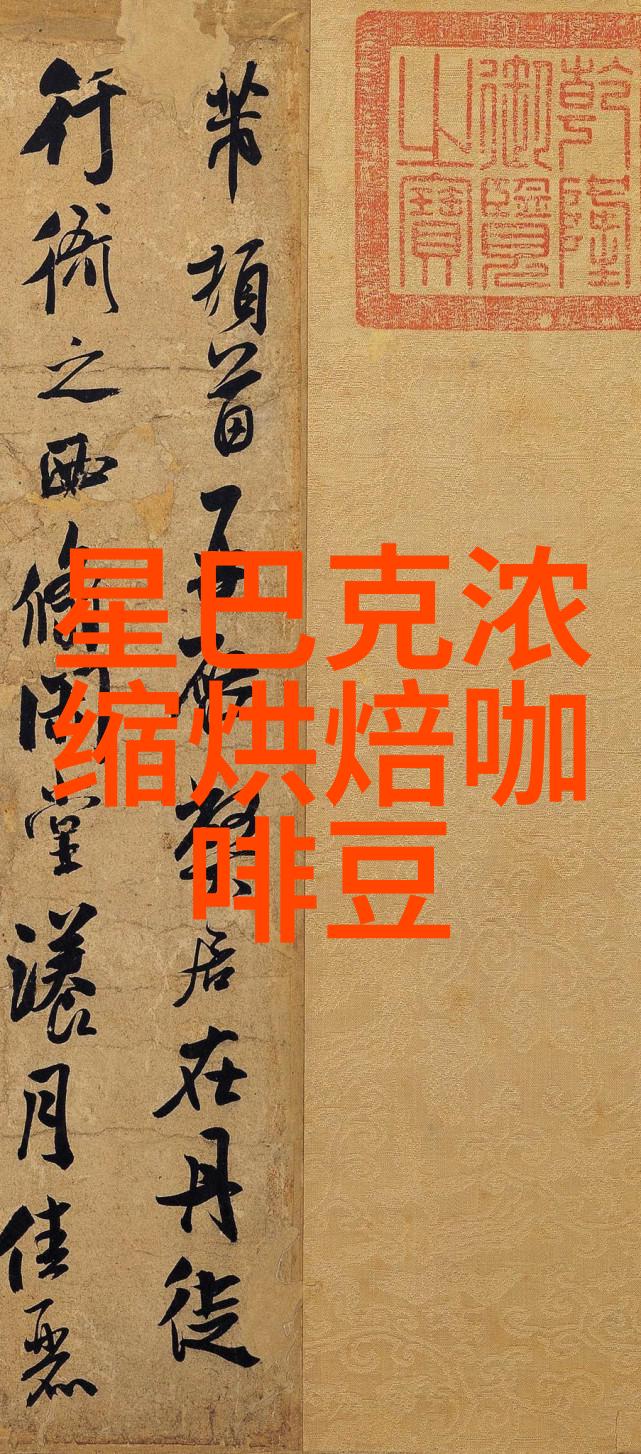 乾隆
御覽
之寶
芾頓首再啓弊居在丹徒
行衙之西翛閒堂漾月佳麗
星巴克浓
缩烘焙咖
啡豆